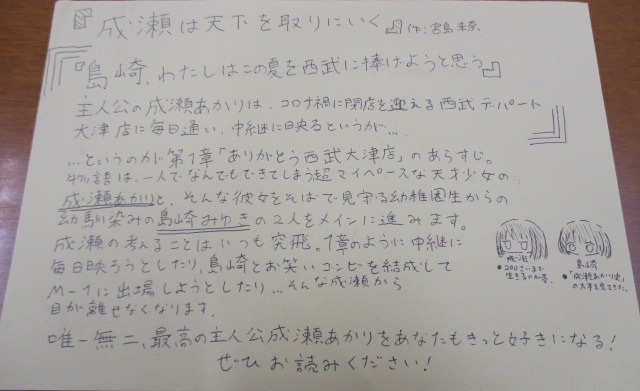 『成瀬は天下を取りにいく』作:宮島未奈
『島崎、わたしはこの夏を西武に捧げようと思う』
主人公の成瀬あかりは、コロナ禍に閉店を迎える西武デパート
大津店に毎日通い、中継に映るというが…
…というのが第1章「ありがとう西武大津店」のあらすじ。
物語は、一人でなんでもできてしまう超マイペースな天才少女の
成瀬あかりと、そんな彼女をそばで見守る幼稚園生からの
幼馴染みの島崎みゆきの2人をメインに進みます。
成瀬の考えることはいつも突飛。1章のように中継に
毎日映ろうとしたり、島崎とお笑いコンビを結成して
M-1に出場しようとしたり…そんな成瀬から
目が離せなくなります。
成瀬
●200さいまで
生きるのが夢。
島崎
●「成瀬あかり史」
の大半を見てきた。
唯一無二、最高の主人公成瀬あかりをあなたもきっと好きになる!
ぜひお読みください!